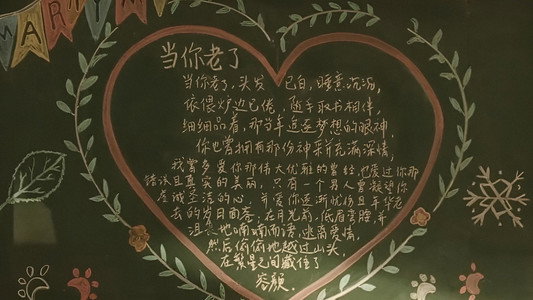 MARRY M
当你老了
当你老了，头发已白，睡意沉沉，
依偎炉边已倦，随手取书相伴，
细细品看，那当年追逐梦想的眼神，
你也曾拥有那份神采并充满深情，
我曾多爱你那伟大优雅的曾经，也爱过你那
错误且真实的美丽，只有一个男人曾凝望你
虔诚圣洁的心，并爱你逐渐忧伤且年华老
去的岁月面容；在月光前，低眉弯膝，并
沮丧地喃喃而语，逃离爱情，
然后偷偷地越过山头，
在繁星之间藏住了
容颜．